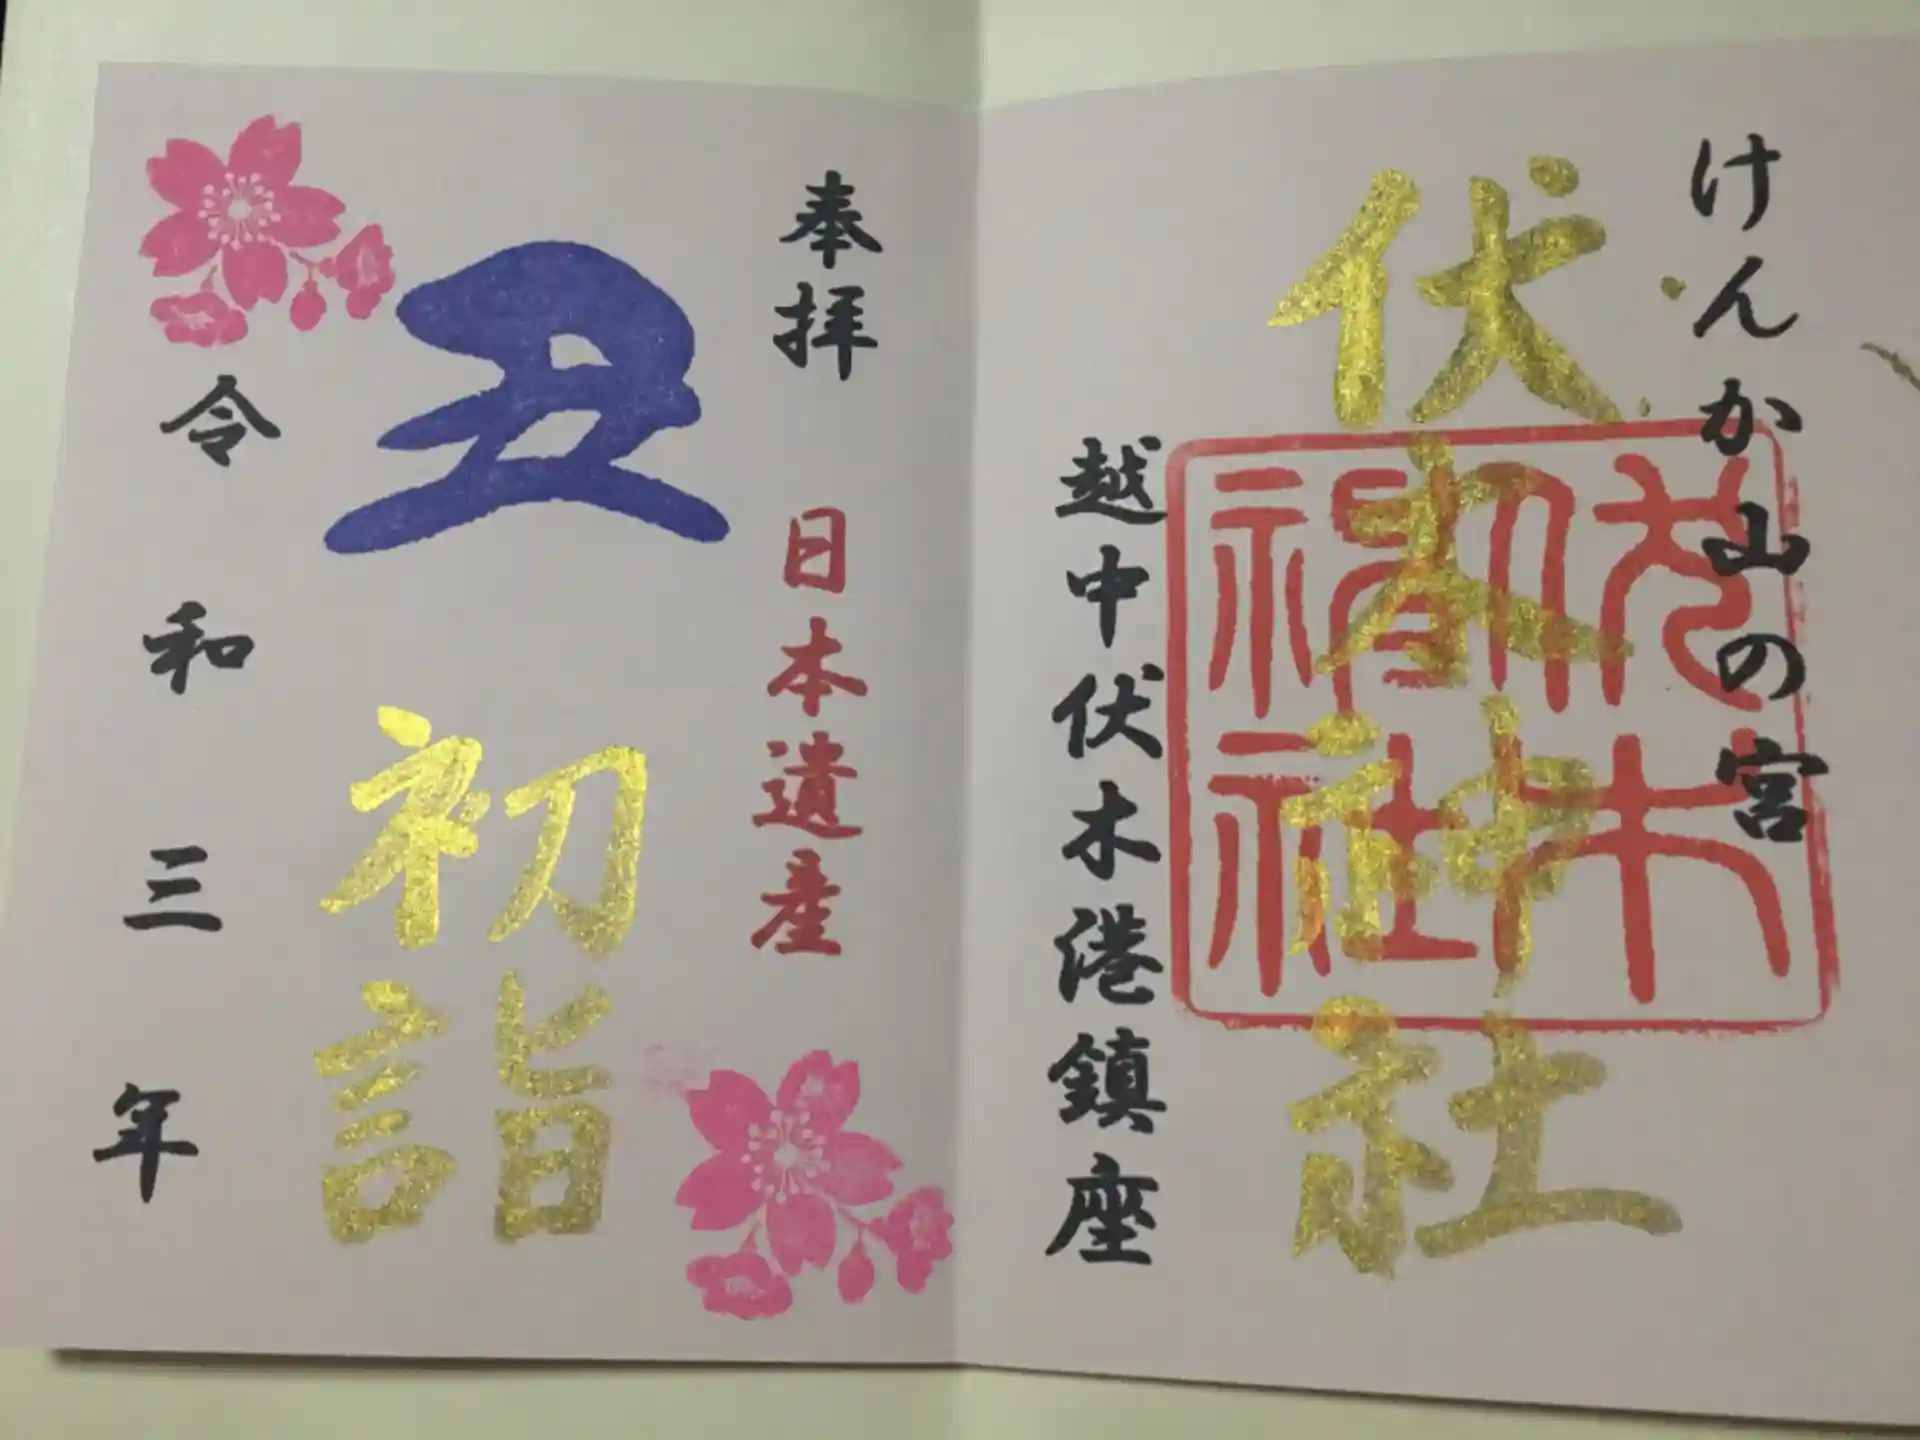 けんか山の宮
伏木神社
伏木
神社
越中伏木港鎮座
奉拝
日本遺産
丑
初詣
令和三年